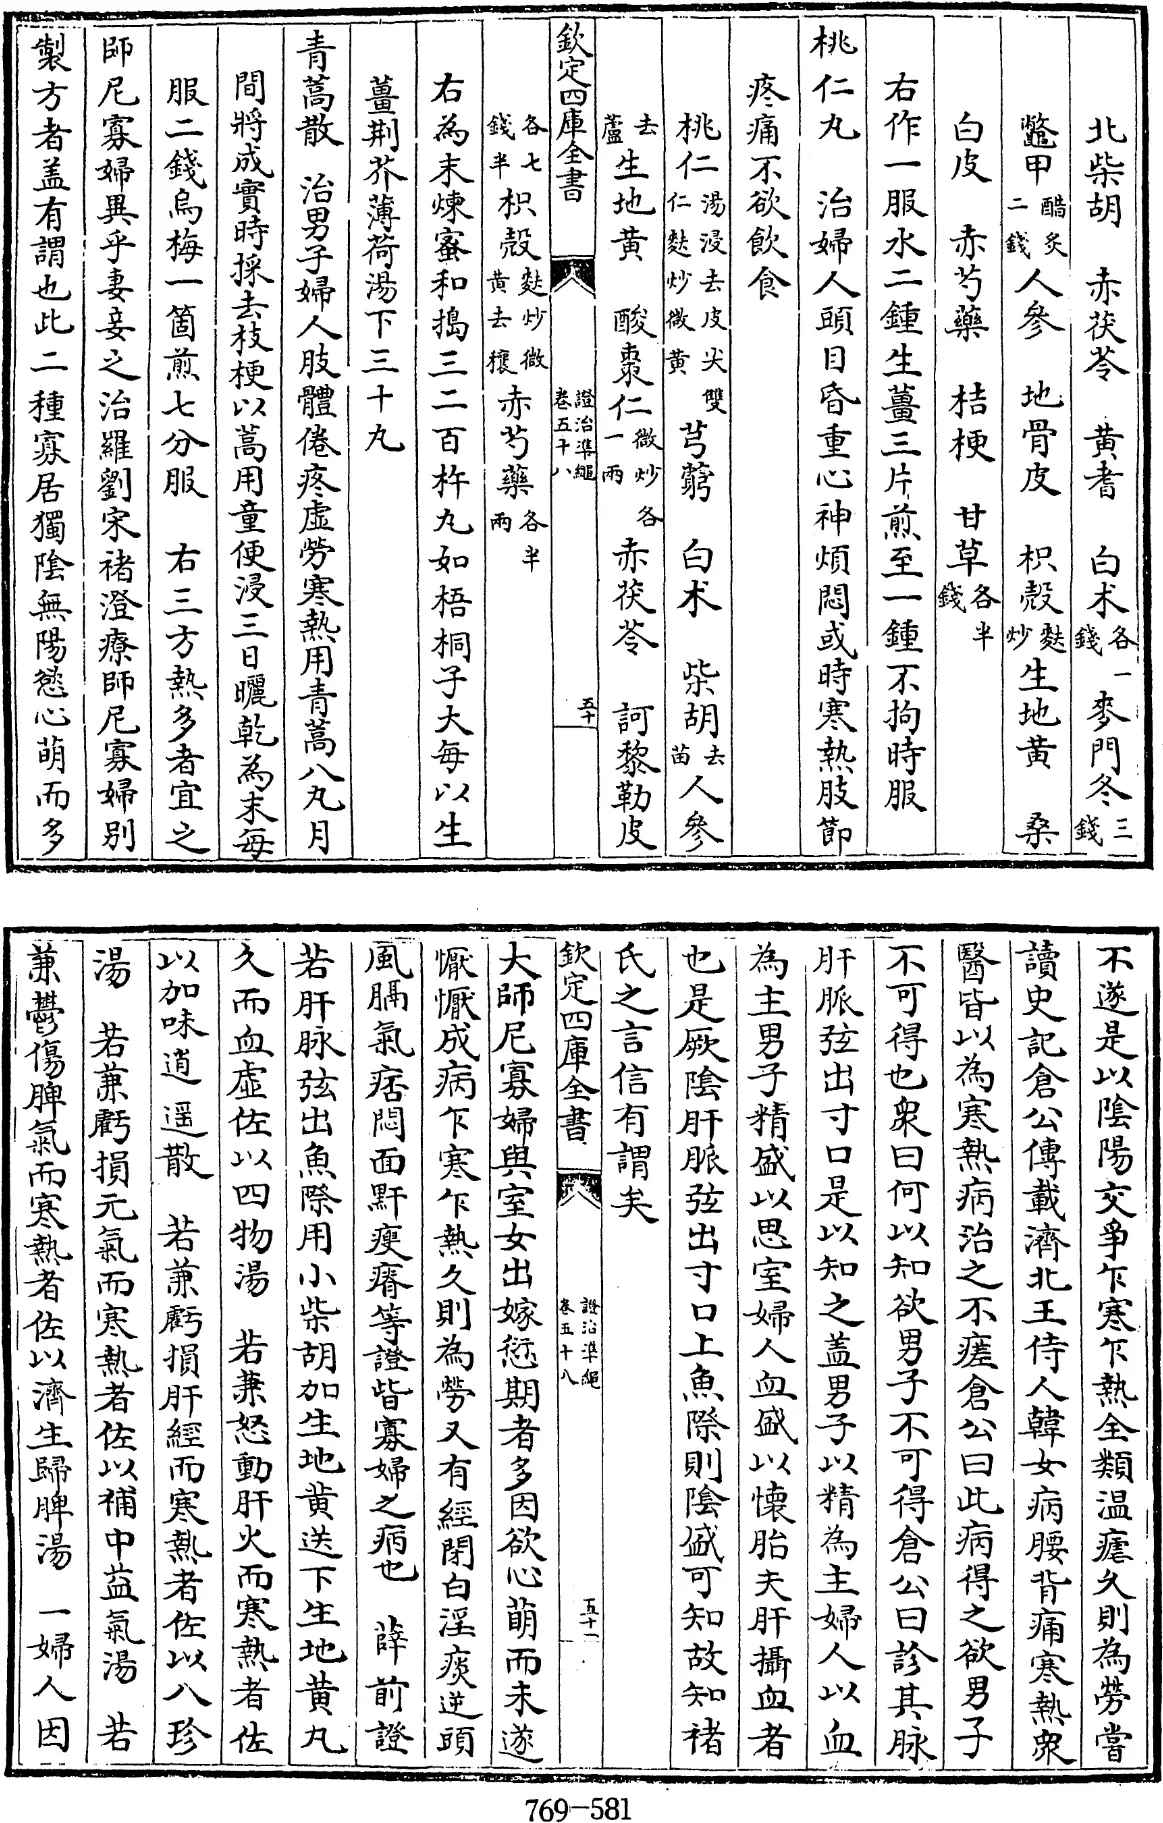 北柴胡　赤茯苓　黄耆　白术各一錢　麥門冬三錢
鼈甲醋炙二錢　人參　地骨皮　枳殻麩炒　生地黄　桑
白皮　赤芍藥　桔梗　甘草各半錢
右作一服水二鍾生薑三片煎至一鍾不拘時服
桃仁丸　治婦人頭目昏重心神煩悶或時寒熱肢節
疼痛不欲飲食
桃仁湯浸去皮尖雙仁麩炒微黄　芎藭　白术　柴胡去苗　人參
去蘆　生地黄　酸棗仁微炒各一兩　赤茯苓　訶黎勒皮
欽定四庫全書　證治準繩卷五十八　五十
各七錢半　枳殻麩炒微黄去穰　赤芍藥各半兩
右為末煉蜜和搗三二百杵丸如梧桐子大每以生
薑荆芥薄荷湯下三十丸
青蒿散　治男子婦人肢體倦疼虛勞寒熱用青蒿八九月
間將成實時採去枝梗以蒿用童便浸三日曬乾為末每
服二錢烏梅一箇煎七分服　右三方熱多者宜之
師尼寡婦異乎妻妾之治羅劉宋褚澄療師尼寡婦别
製方者盖有謂也此二種寡居獨陰無陽慾心萌而多
不遂是以陰陽交爭乍寒乍熱全類温瘧久則為勞嘗
讀史記倉公傳載濟北王侍人韓女病腰背痛寒熱衆
醫皆以為寒熱病治之不瘥倉公曰此病得之欲男子
不可得也衆曰何以知欲男子不可得倉公曰診其脉
肝脈弦出寸口是以知之盖男子以精為主婦人以血
為主男子精盛以思室婦人血盛以懷胎夫肝攝血者
也是厥陰肝脈弦出寸口上魚際則陰盛可知故知褚
氏之言信有謂矣
欽定四庫全書　證治準繩卷五十八　五十一
大師尼寡婦與室女出嫁愆期者多因欲心萌而未遂
懨懨成病乍寒乍熱久則為勞又有經閉白淫痰逆頭
風膈氣痞悶面䵟瘦瘠等證皆寡婦之病也　薛前證
若肝脉弦出魚際用小柴胡加生地黄送下生地黄丸
久而血虛佐以四物湯　若兼怒動肝火而寒熱者佐
以加味逍遥散　若兼虧損肝經而寒熱者佐以八珍
湯　若兼虧損元氣而寒熱者佐以補中益氣湯　若
兼鬱傷脾氣而寒熱者佐以濟生歸脾湯　一婦人因
769-581